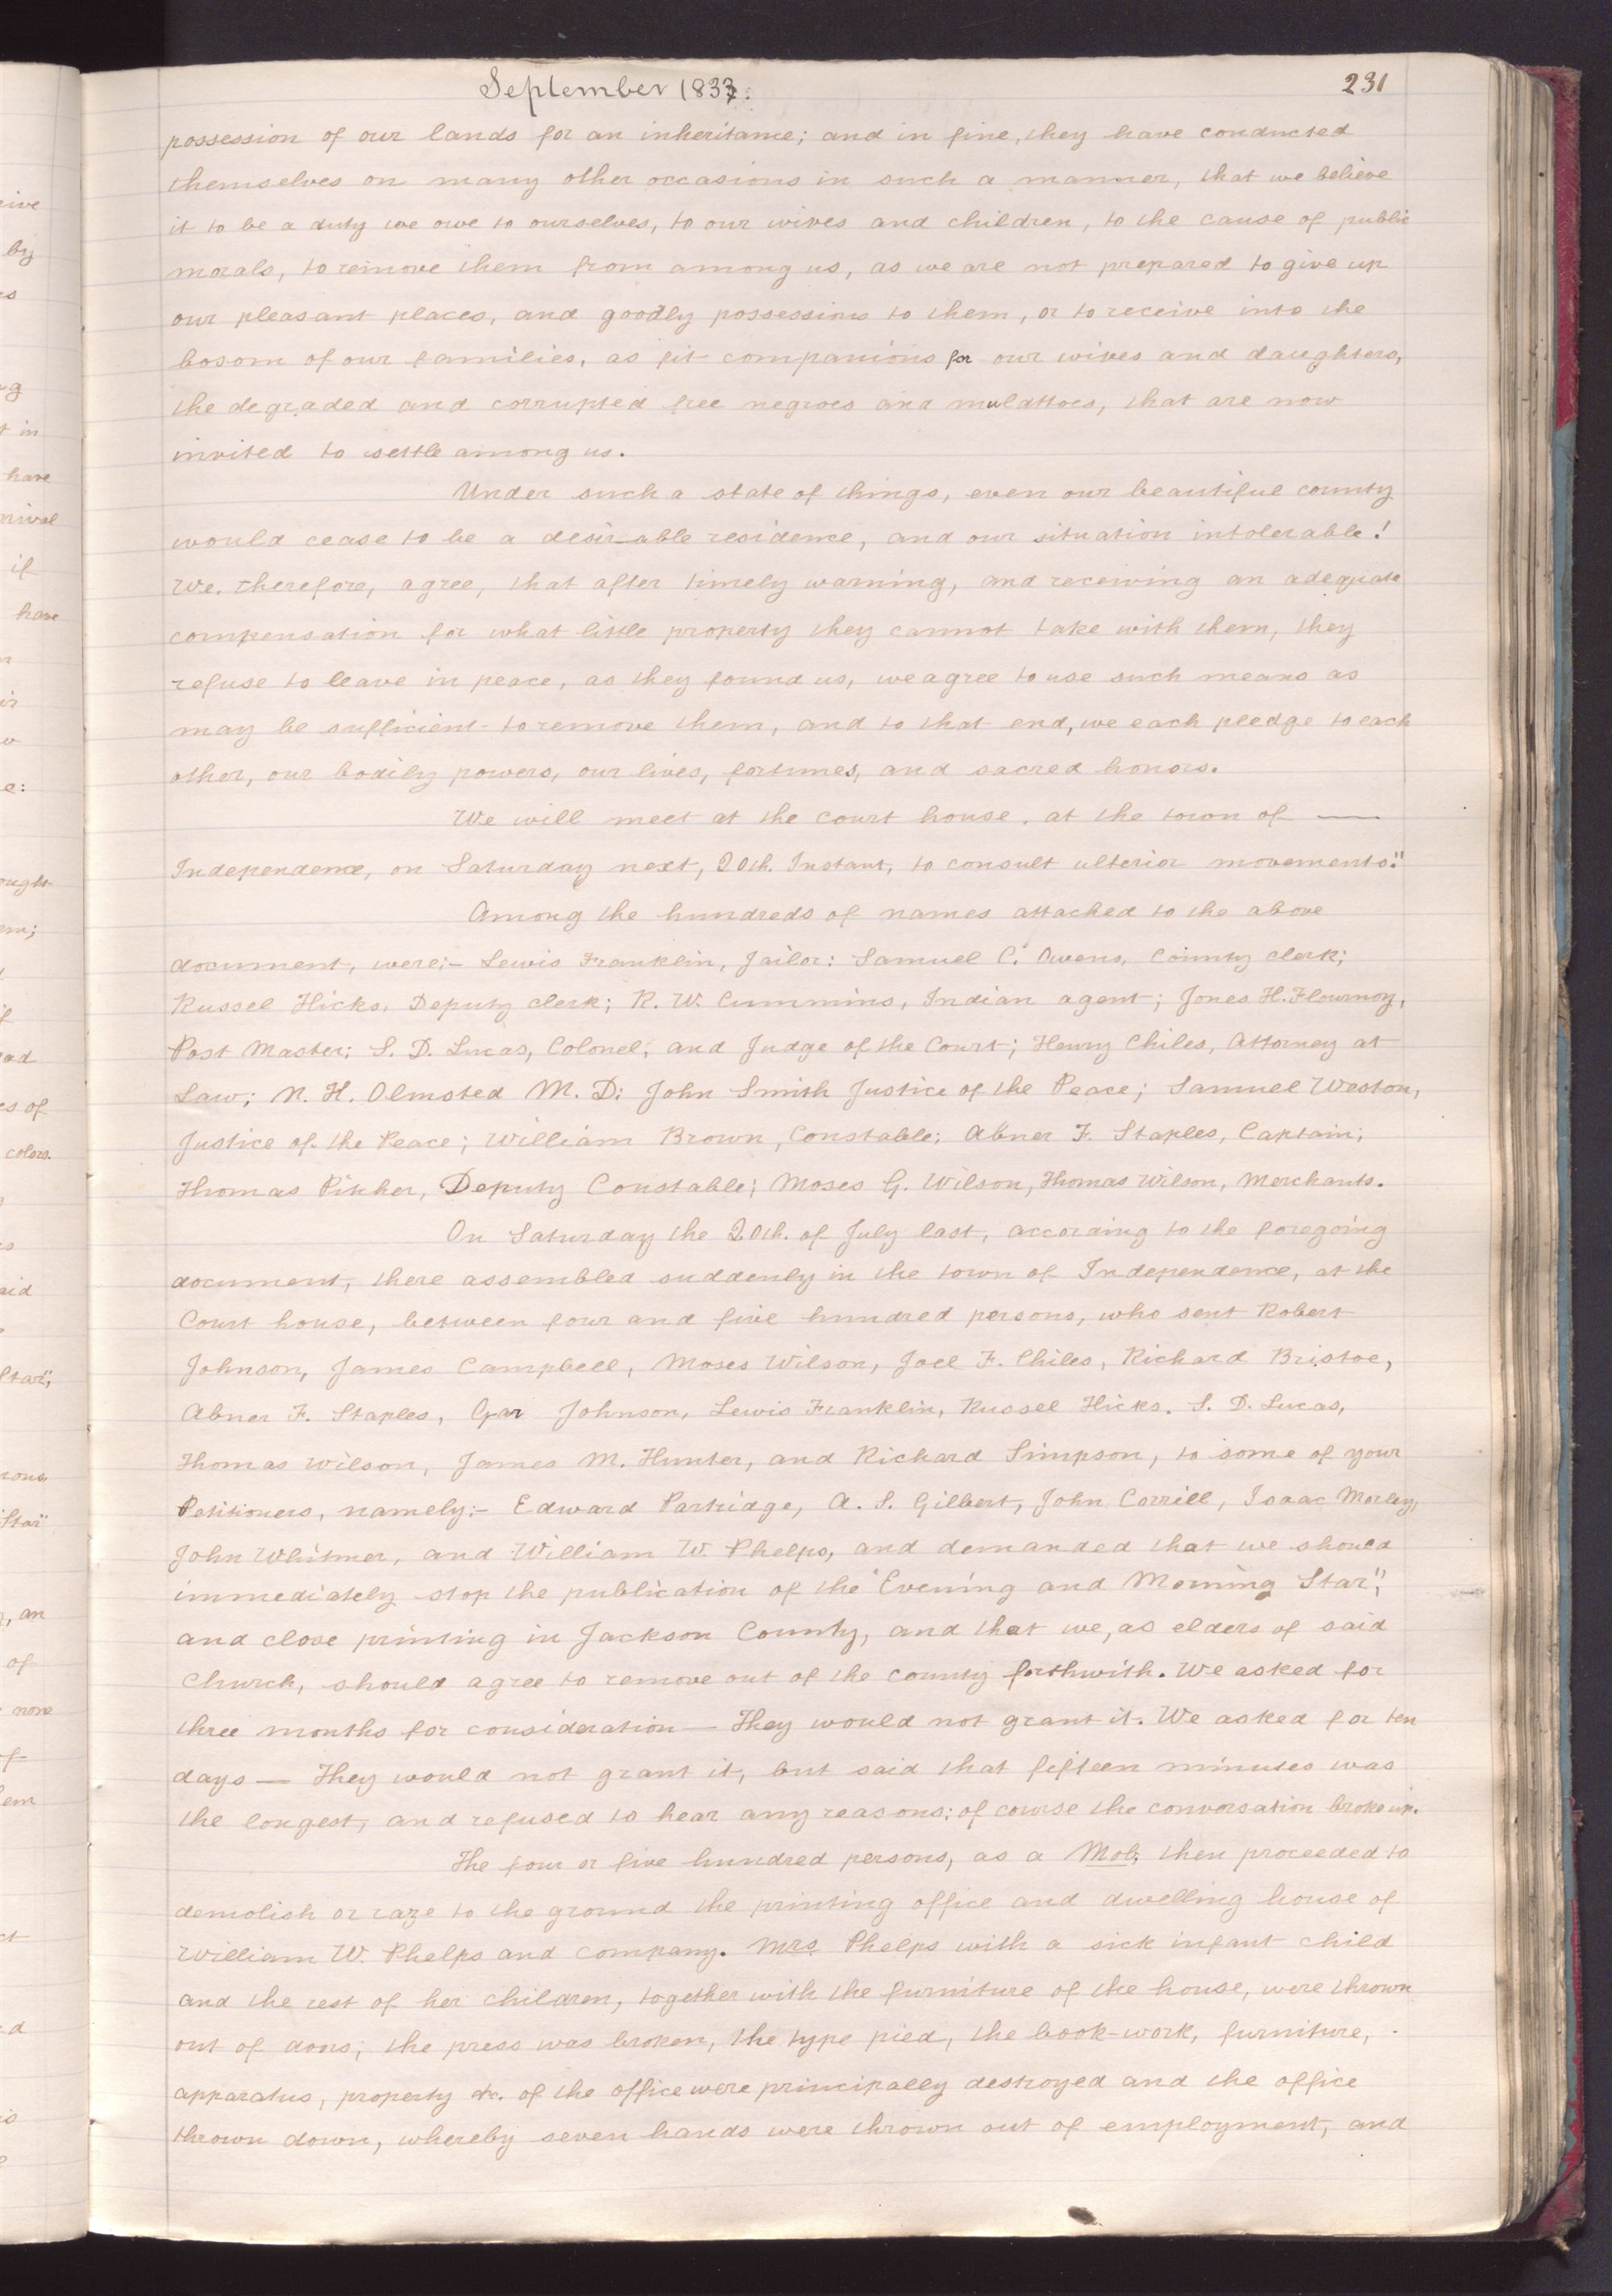 September 1833.
231
possession of our lands for an inheritance; and in fine, they have conducted
themselves on many other occasions in such a manner, that we believe
it to be a duty we owe to ourselves, to our wives and children, to the cause of public
morals, to remove them from among us, as we are not prepared to give up
our pleasant places, and goodly possessions to them, or to receive into the
bosom of our families, as fit companions for our wives and daughters,
the degraded and corrupted free negroes and mulattoes, that are now
invited to settle among us.
Under such a state of things, even our beautiful county
would cease to be a desir-able residence, and our situation intolerable!
We, therefore, agree, that after timely warning, and receiving an adequate
compensation for what little property they cannot take with them, they
refuse to leave in peace, as they found us, we agree to use such means as
may be sufficient to remove them, and to that end, we each pledge to each
other, our bodily powers, our lives, fortunes, and sacred honors.
We will meet at the court house, at the town of —
Independence, on Saturday next, 20th. Instant, to consult ulterior movements."
Among the hundreds of names attached to the above
document, were:- Lewis Franklin, Jailor: Samuel C. Owens, County clerk;
Russel Hicks, Deputy clerk; R. W. Cummins, Indian agent; Jones H. Flournoy,
Post Master; S. D. Lucas, Colonel, and Judge of the Court; Henry Chiles, Attorney at
Law; N. H. Olmsted M. D; John Smith Justice of the Peace; Samuel Weston,
Justice of the Peace; William Brown, Constable; Abner F. Staples, Captain;
Thomas Pitcher, Deputy Constable; Moses G. Wilson, Thomas Wilson, Merchants.
On Saturday the 20th. of July last, according to the foregoing
document, there assembled suddenly in the town of Independence, at the
Court house, between four and five hundred persons, who sent Robert
Johnson, James Campbell, Moses Wilson, Joel F. Chiles, Richard Bristoe,
Abner F. Staples, Gan Johnson, Lewis Franklin, Russel Hicks. S. D. Lucas,
Thomas Wilson, James M. Hunter, and Richard Simpson, to some of your
Petitioners, namely:- Edward Partridge, A. S. Gilbert, John Corrill, Isaac Morley,
John Whitmer, and William W. Phelps, and demanded that we should
immediately stop the publication of the "Evening and Morning Star",
and close printing in Jackson County, and that we, as elders of said
Church, should agree to remove out of the county forthwith. We asked for
three months for consideration — They would not grant it. We asked for ten
days — They would not grant it, but said that fifteen minutes was
the longest, and refused to hear any reasons: of course the conversation broke up.
The four or five hundred persons, as a Mob, then proceeded to
demolish or raze to the ground the printing office and dwelling house of
William W. Phelps and company. Mrs. Phelps with a sick infant child
and the rest of her children, together with the furniture of the house, were thrown
out of doors; the press was broken, the type pied, the book-work, furniture,
apparatus, property &c. of the office were principally destroyed and the office
thrown down, whereby seven hands were thrown out of employment, and